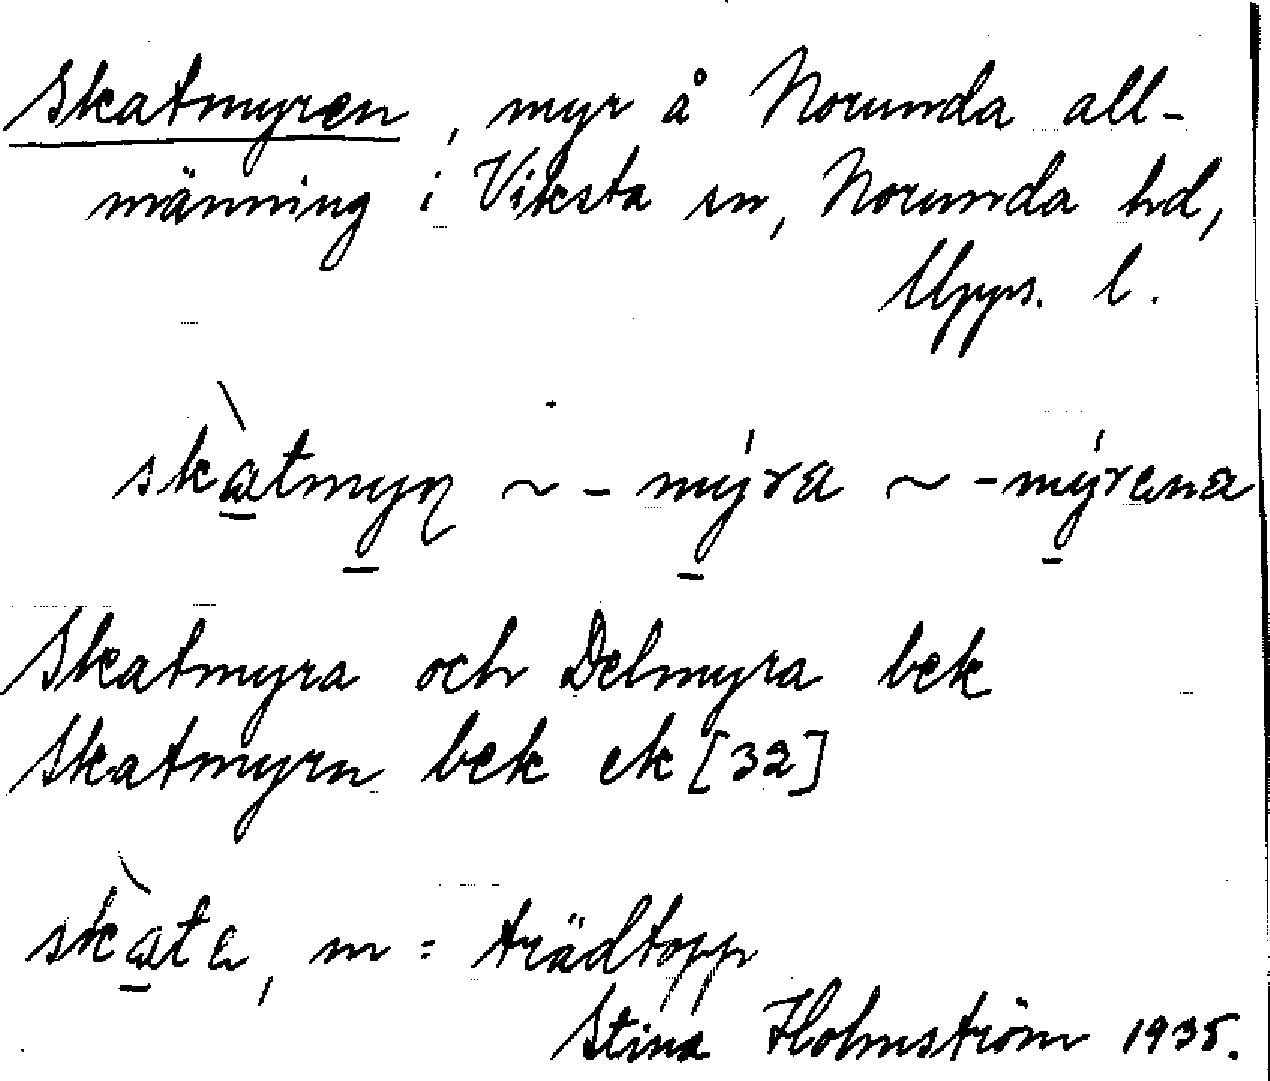 Skatmyren, myr å Norunda all-
männing i Viksta sn, Norunda hd,
Upps. l.
skàtmyn ~ -mýra ~ -mýrena
Skatmyra och Delmyra bek
Skatmyrn bek ek [32]
skàta, m = trädtopp
Stina Holmström 1935.